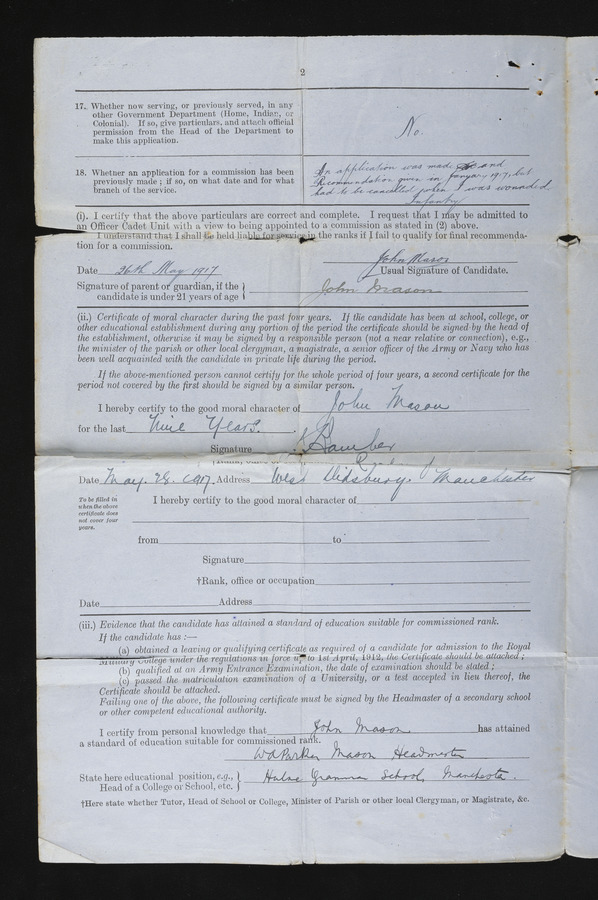 2
17. Whether now serving, or previously served, in any
other Government Department (Home, Indian, or
Colonial). If so, give particulars, and attach official
permission from the Head of the Department to
make this application.
No.
18. Whether an application for a commission has been
previously made ; if so, on what date and for what
branch of the service.
An application was made and
Recommendation given in January 1917, but
had to be cancelled when I was wounded.
Infantry
(i). I certify that the above particulars are correct and complete. I request that I may be admitted to
an Officer Cadet Unit with a view to being appointed to a commission as stated in (2) above.
I understand that I shall be held liable for service in the ranks if I fail to qualify for final recommenda-
tion for a commission.
John Mason
Date 26th May 1917
Usual Signature of Candidate.
Signature of parent or guardian, if the
candidate is under 21 years of age } John Mason
(ii.) Certificate of moral character during the past four years. If the candidate has been at school, college, or
other educational establishment during any portion of the period the certificate should be signed by the head of
the establishment, otherwise it may be signed by a responsible person (not a near relative or connection), e.g.,
the minister of the parish or other local clergyman, a magistrate, a senior officer of the Army or Navy who has
been well acquainted with the candidate in private life during the period.
If the above-mentioned person cannot certify for the whole period of four years, a second certificate for the
period not covered by the first should be signed by a similar person.
I hereby certify to the good moral character of John Mason
for the last Nine Years.
Signature Bamber
Date May. 28. 1917. Address West Didsbury. Manchester
To be filled in
when the above
certificate does
not cover four
years.
I hereby certify to the good moral character of
from to
Signature
†Rank, office or occupation
Date Address
(iii.) Evidence that the candidate has attained a standard of education suitable for commissioned rank.
If the candidate has :—
(a) obtained a leaving or qualifying certificate as required of a candidate for admission to the Royal
Military College under the regulations in force up to 1st April, 1912, the Certificate should be attached ;
(b) qualified at an Army Entrance Examination, the date of examination should be stated ;
(c) passed the matriculation examination of a University, or a test accepted in lieu thereof, the
Certificate should be attached.
Failing one of the above, the following certificate must be signed by the Headmaster of a secondary school
or other competent educational authority.
I certify from personal knowledge that John Mason has attained
a standard of education suitable for commissioned rank.
W A Parker Mason Headmaster
State here educational position, e.g.,
Head of a College or School, etc. } Hulme Grammar School, Manchester.
†Here state whether Tutor, Head of School or College, Minister of Parish or other local Clergyman, or Magistrate, &c.